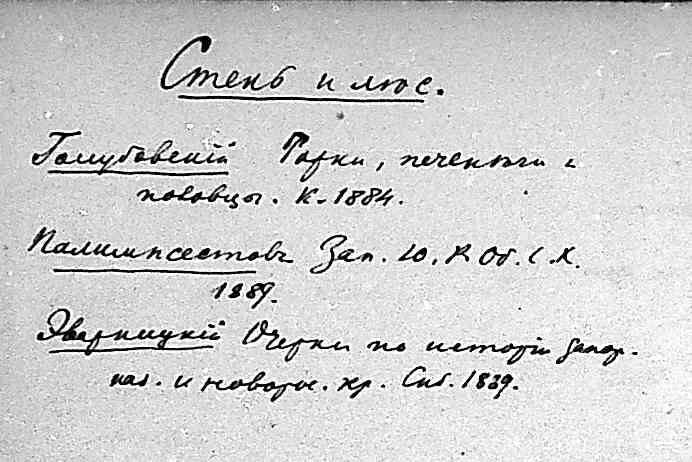 Степь и люс.
Голубовскій Торки, печенюги и
половцы. К. 1884.
Палимпсестовъ Зап. Ю. Р. Об. С. Х.
1889.
Эварницкій Очерки по исторіи запор.
каз. и новорос. кр. Спб. 1889.